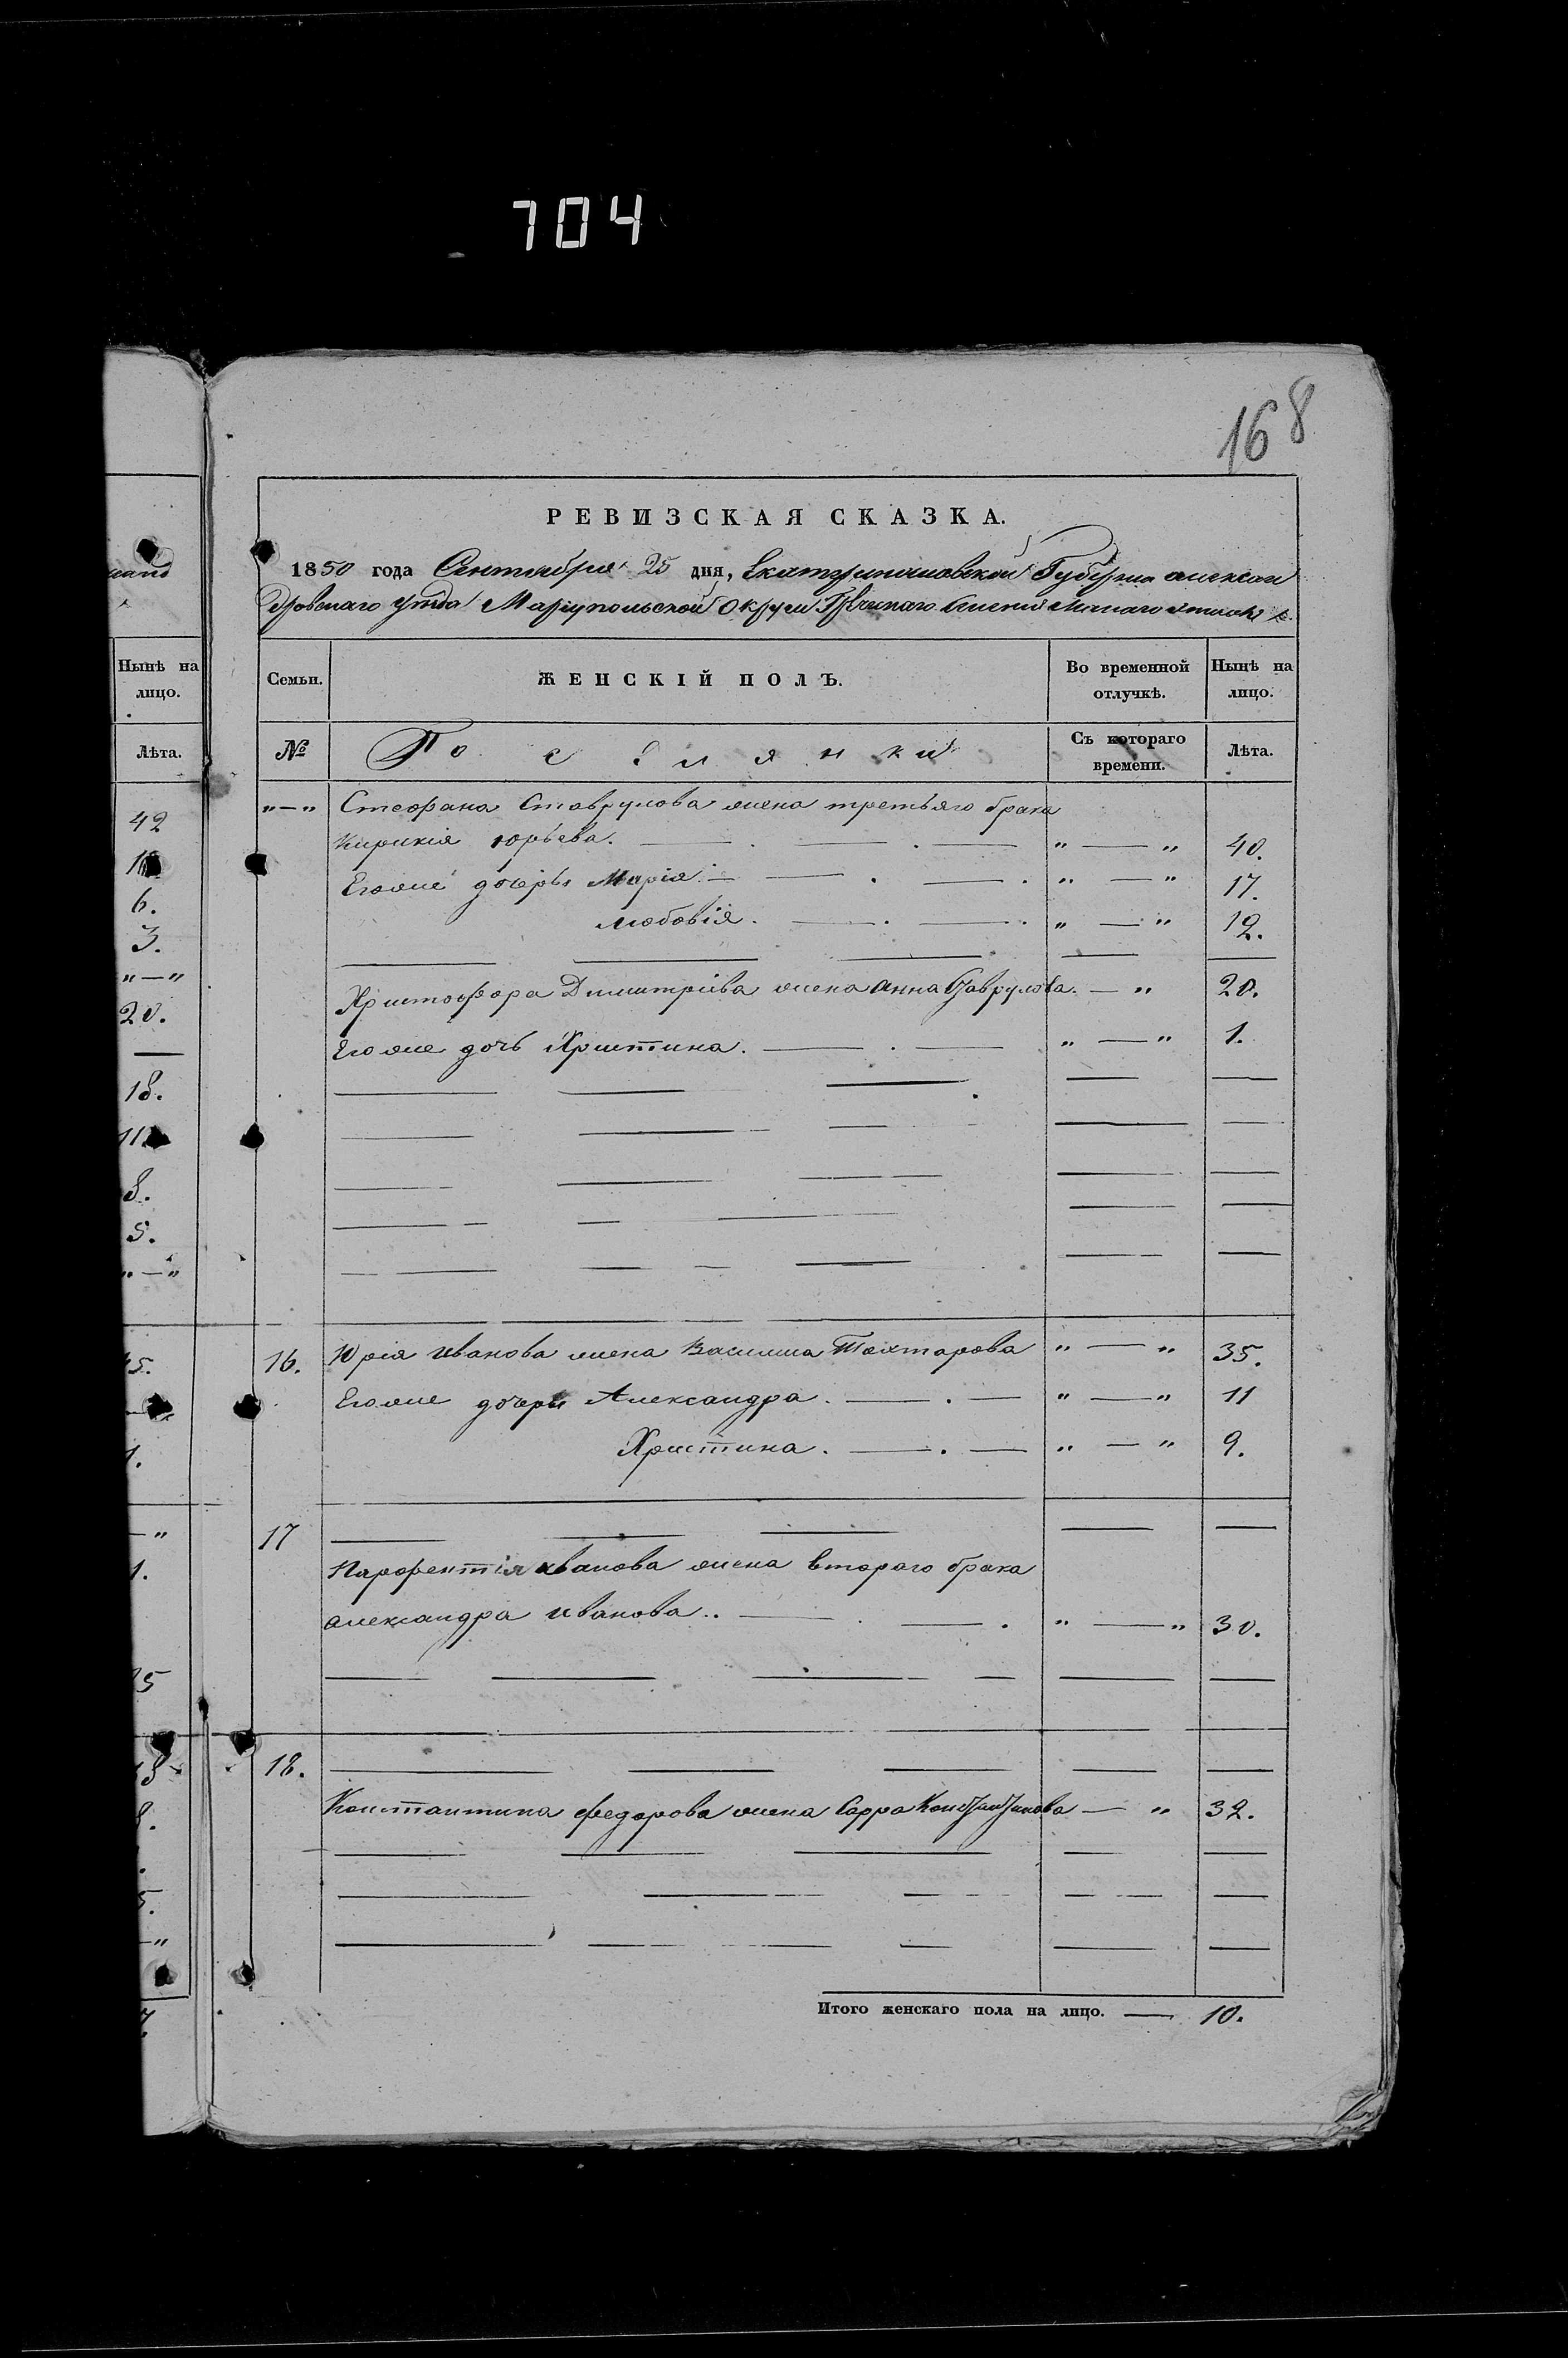 704
168
РЕВИЗСКАЯ СКАЗКА.
1850 года Сентября 25 дня, Екатеринославской Губерніи алексан
дровскаго уезда Маріупольской Округи Греческаго Селенія Малаго
Нынѣ на лицо.
Лѣта.
42
6.
3.
"—"
20.
18.
8.
5.
"—"
Семьи.
ЖЕНСКІЙ ПОЛЪ.
Во временной отлучкѣ.
Нынѣ на лицо.
№
Поселянки
Съ котораго времени.
Лѣта.
"—" Стефана Ставрулова жена третьяго брака
Кирикія юрьева. — . — . — " — " 40.
Егоже дочери Марія — — . — . " — " 17.
Любовія. — . — . " — " 12.
Христофора Димитріева жена анна Ставрулова. — " 20.
Егоже дочь Христина. — . — " — " 1.
16. Юрія иванова жена Василиса Тохтарова " — " 35.
Егоже дочери Александра. — . — " — " 11
Христина. — . — " — " 9.
17
Парфентія иванова жена втораго брака
александра иванова.. — . — . " — " 30.
18.
Константина федорова жена Сарра Константинова — " 32.
Итого женскаго пола на лицо. — 10.